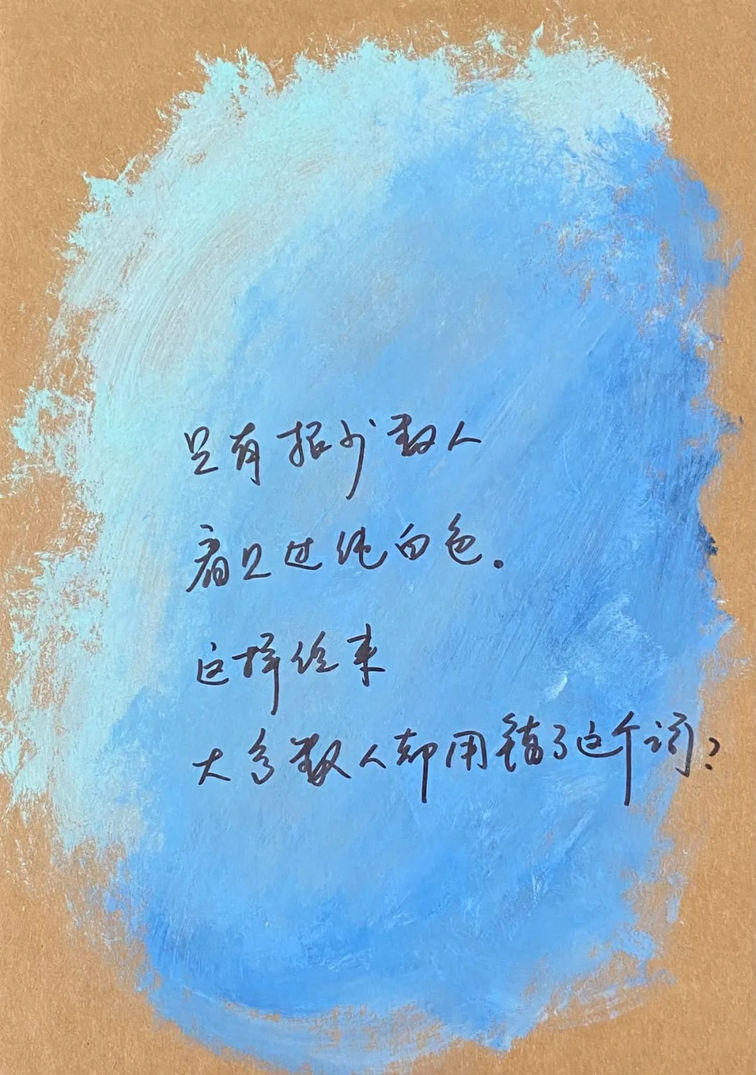 只有极少数人
看见过纯白色。
这样来
大多数人都用错了这个词?